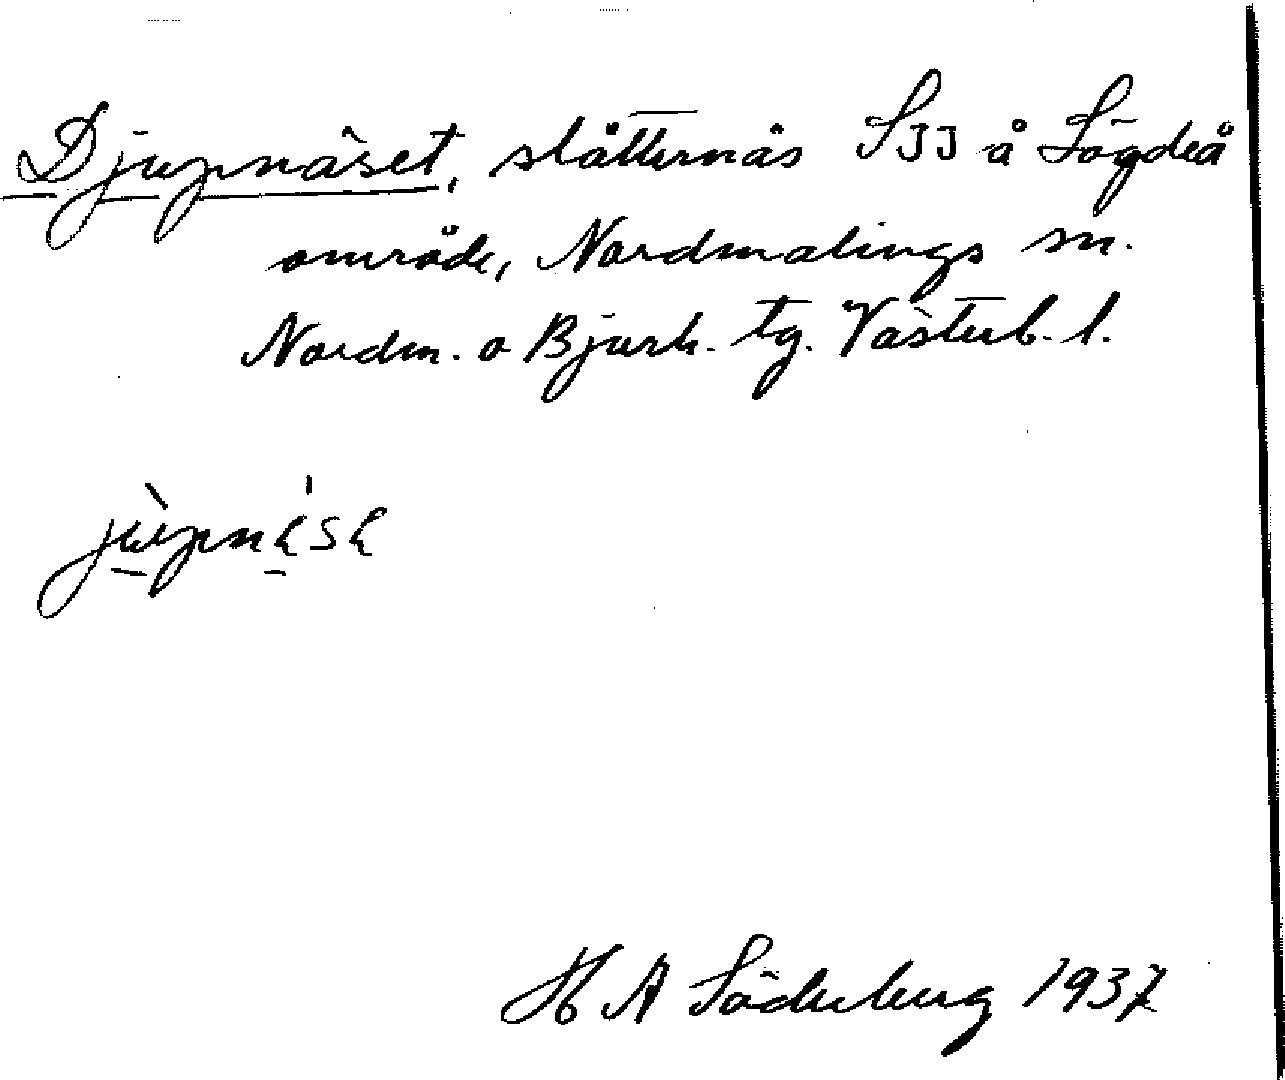 Djupnäset, slåtternäs SJJ å Lögdeå
område, Nordmalings sn.
Nordm. o Bjurh. tg. Västerb. l.
H A Söderberg 1937